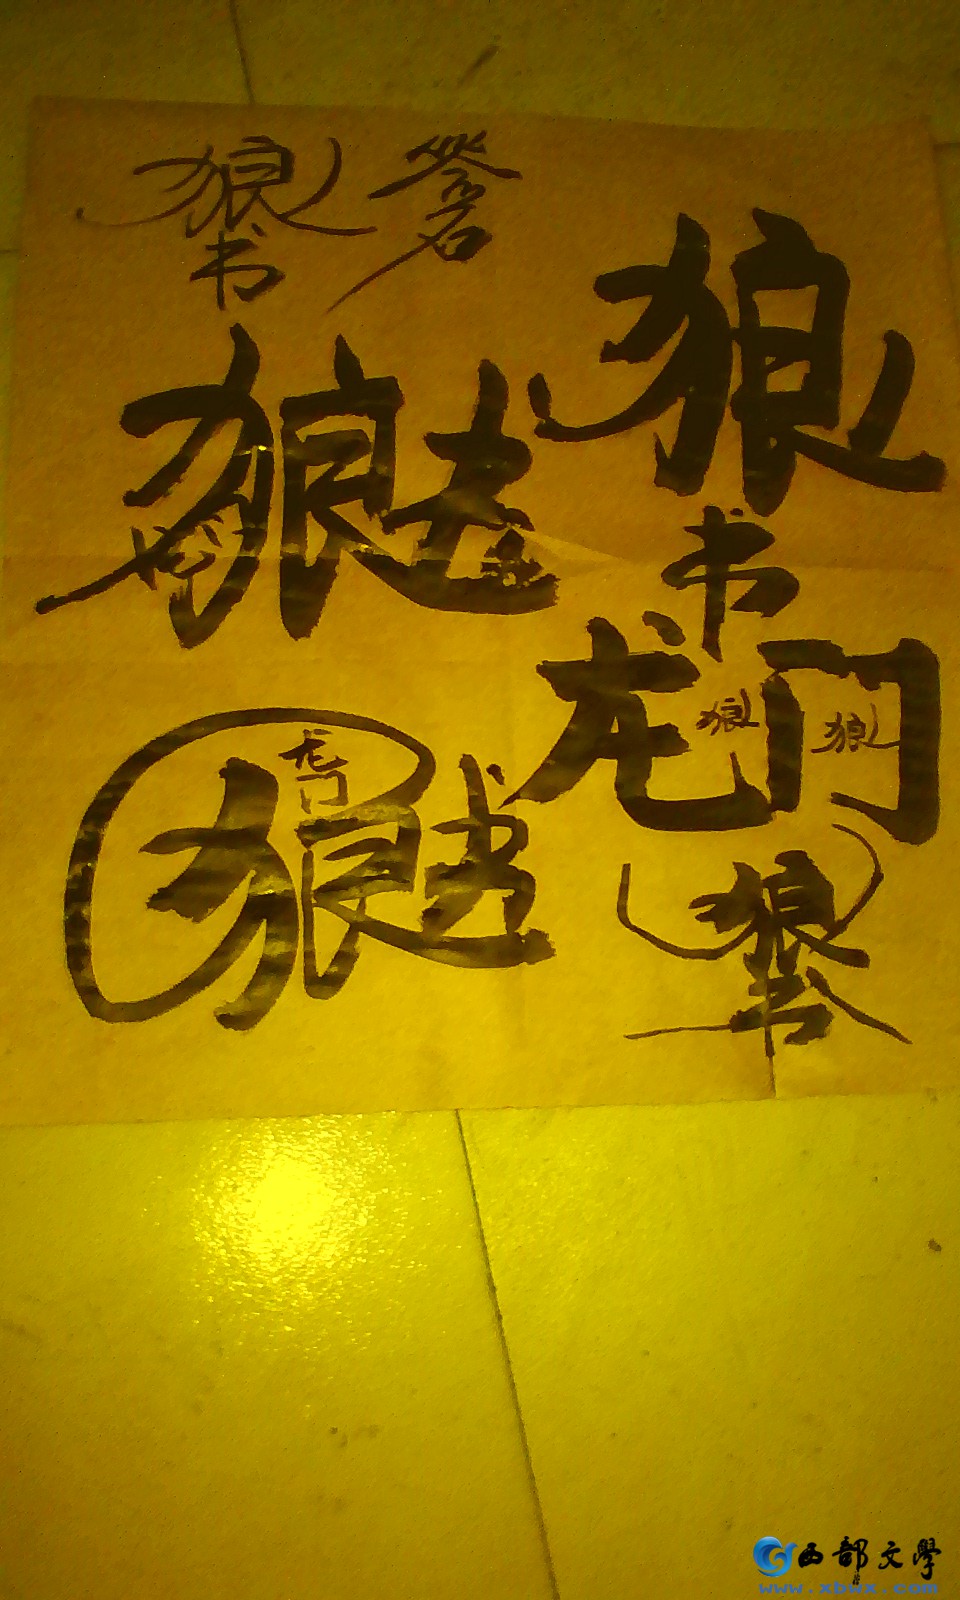 狼书
签名
狼
书
龙门
狼
狼
狼书
龙门
狼书
西部文學
www.xbwx.com